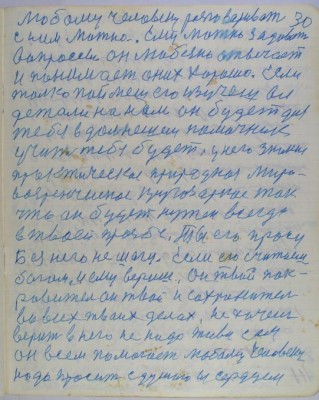 любому человеку разговаривать 30
с ним можно. Ему можно задават
вопросы он любезно отвечает
и понимает оних хорошо. Если
только поймем его изучем ол
детали на нем он будет для
тебя в дальнешем помочник
учит тебя будет, у него знания
практическое природная миро-
воззренческое кругозаркае так
что он будут нужен всегда
в твоей прозбе. Ты его просу
Без него не шагу. Если его считаеш
богом, ему вериш. Он твой пок-
равител он твой и сохранител
во всех твоих делах, не хочеш
верит в него не надо живи сам
он всем помогает любому человеку
надо просит с душой и сердцем